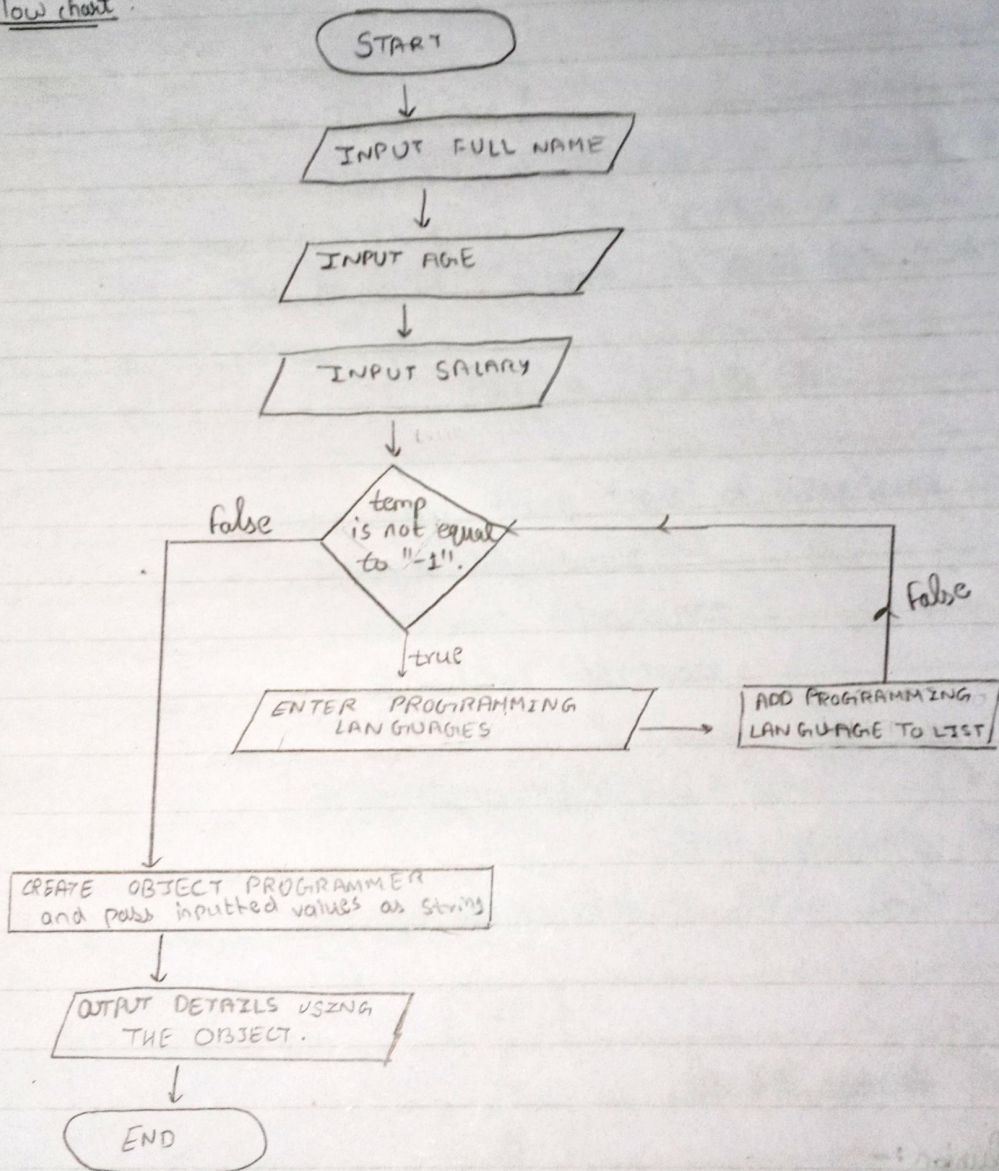 low chart.
START
INPUT FULL NAME
INPUT AGE
INPUT SALARY
temp
is not equal
to "-1".
False
False
true
ENTER PROGRAMMING
LANGUAGES
ADD PROGRAMMING
LANGUAGE TO LIST
CREATE OBJECT PROGRAMMER
and pass inputted values as string
OUTPUT DETAILS USING
THE OBJECT.
END